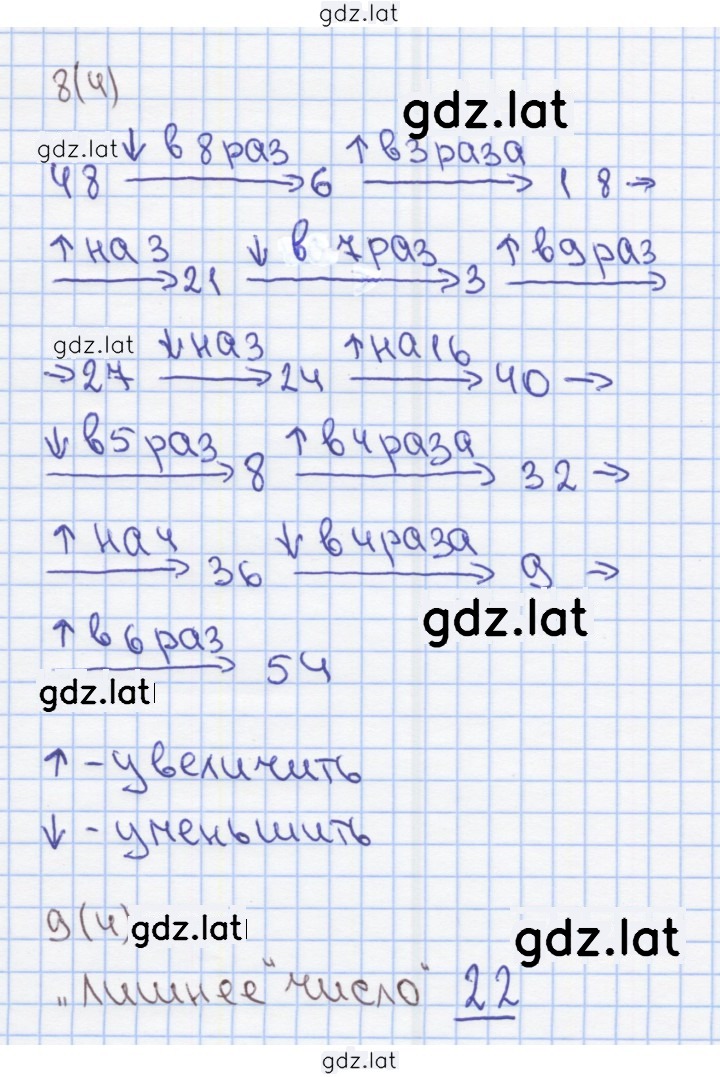 gdz.lat
8(4)
gdz.lat
gdz.lat ↓ в 8 раз ↑ в 3 раза
48 → 6 → 18 →
↑ на 3 ↓ в 7 раз ↑ в 9 раз
→ 21 → 3 →
gdz.lat ↓ на 3 ↑ на 16
→ 27 → 24 → 40 →
↓ в 5 раз ↑ в 4 раза
→ 8 → 32 →
↑ на 4 ↓ в 4 раза
→ 36 → 9 →
gdz.lat
↑ в 6 раз
→ 54
gdz.lat
↑ - увеличить
↓ - уменьшить
9(4) gdz.lat
gdz.lat
„лишнее" число" 22
gdz.lat